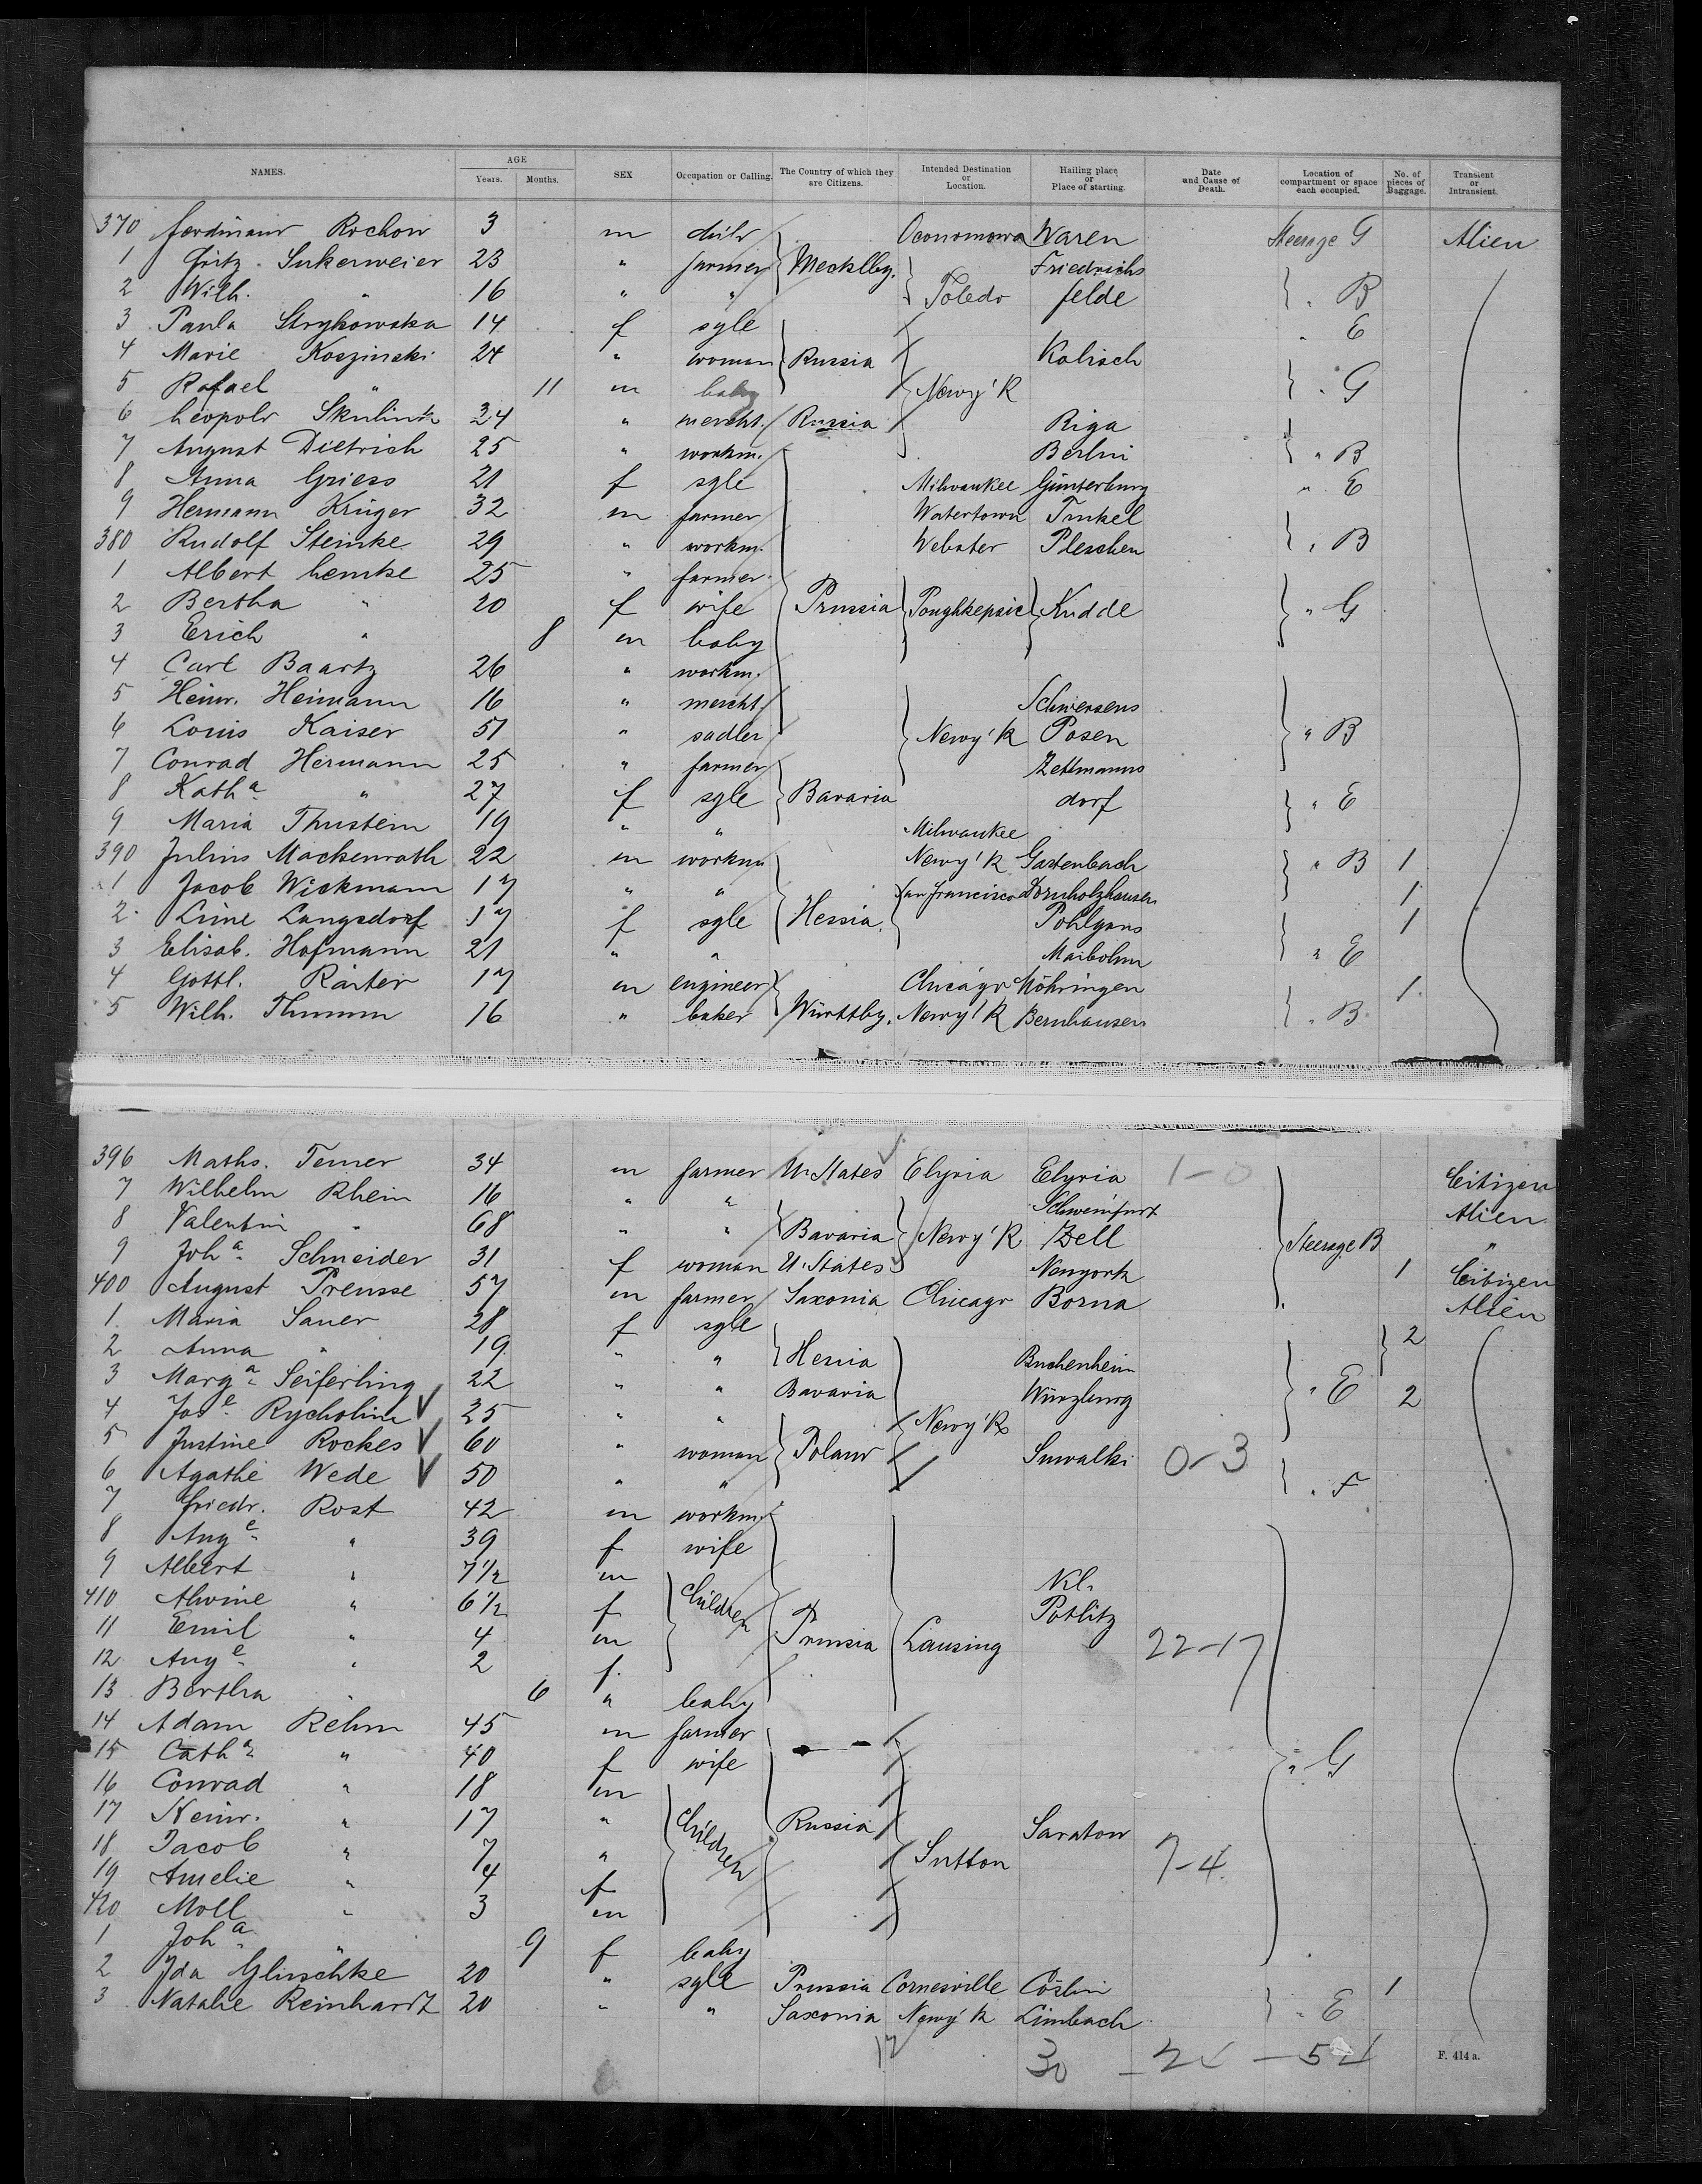 NAMES. AGE SEX Occupation or Calling. The Country of which they are Citizens. Intended Destination or Location. Hailing place or Place of starting. Date and Cause of Death. Location of compartment or space each occupied. No. of pieces of Baggage. Transient or Intransient.
Years. Months.
370 Ferdinand Rochow 3 m child Oconomowa Waren Steerage G Alien
1 Fritz Sukerweier 23 " farmer Mecklbg. Friedrichs
2 Wilh. " 16 " " Toledo felde " B
3 Paula Strykowska 14 f sgle " E
4 Marie Koszinski 24 " woman Russia Kalisch
5 Rafael " 11 m baby Newy'k " G
6 Leopold 34 " mercht. Russia Riga
7 August Dietrich 25 " workm. Berlin " B
8 Anna Griess 21 f sgle Milwaukee Günterburg " E
9 Hermann Krüger 32 m farmer Watertown
380 Rudolf Steinke 29 " workm. Webster Pleschen " B
1 Albert Lemke 25 " farmer
2 Bertha " 20 f wife Prussia Poughkepsie Kudde " G
3 Erich " 8 m baby
4 Carl Baartz 26 " workm.
5 Heinr. Heimann 16 " mercht. Schwersens
6 Louis Kaiser 51 " sadler Newy'k Posen " B
7 Conrad Hermann 25 " farmer Zettmanns
8 Kath.a " 27 f sgle Bavaria dorf " E
9 Maria Thustein 19 " " Milwaukee
390 Julius Mackenroth 22 m workm Newy'k Gastenbach " B 1
1 Jacob Wickmann 17 " " San Francisco Dornholzhausen 1
2 Line Langsdorf 17 f sgle Hessia. Pohlgons 1
3 Elisab. Hofmann 21 " " Maibohm " E
4 Gottl. Raiter 17 m engineer Chicago Möhringen 1
5 Wilh. Thumm 16 " baker Württbg. Newy'k Bernhausen " B
396 Maths. Temer 34 m farmer U. States Elyria Elyria 1-0 Citizen
7 Wilhelm Rhein 16 " " Schweinfurt Alien
8 Valentin " 68 " " Bavaria Newy'k Zell Steerage B "
9 Joh.a Schneider 31 f woman U. States Newyork 1 Citizen
400 August Preusse 57 m farmer Saxonia Chicago Borna Alien
1 Maria Sauer 28 f sgle 2
2 Anna " 19 " " Hessia Buchenheim
3 Marg.a Seiferling 22 " " Bavaria Würzburg " E 2
4 Jos.e Rycholim 25 " " Newy'k
5 Justine Rockes 60 " woman Poland Suwalki 0-3
6 Agathe Wede 50 " " " F
7 Friedr. Rost 42 m workm.
8 Aug.e " 39 f wife
9 Albert " 7 1/2 m Kl.
410 Alwine " 6 1/2 f children Potlitz
11 Emil " 4 m Prussia Lausing 22-17
12 Aug.e " 2 f
13 Bertha " 6 " baby
14 Adam Rehm 45 m farmer
15 Cath.a " 40 f wife " G
16 Conrad " 18 m
17 Heinr. " 17 " children Russia Saratow
18 Jacob " 7 " Sutton 7-4
19 Amelie " 4 f
420 Moll " 3 m
1 Joh.a " 9 f baby
2 Ida Glinschke 20 " sgle Prussia Cornesville Cöslin 1
3 Natalie Reinhardt 20 " " Saxonia Newy'k Limbach " E
12 30 F. 414 a.